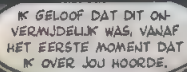 IK GELOOF DAT DIT ON-
VERMIJDELIJK WAS, VANAF
HET EERSTE MOMENT DAT
IK OVER JOU HOORDE.